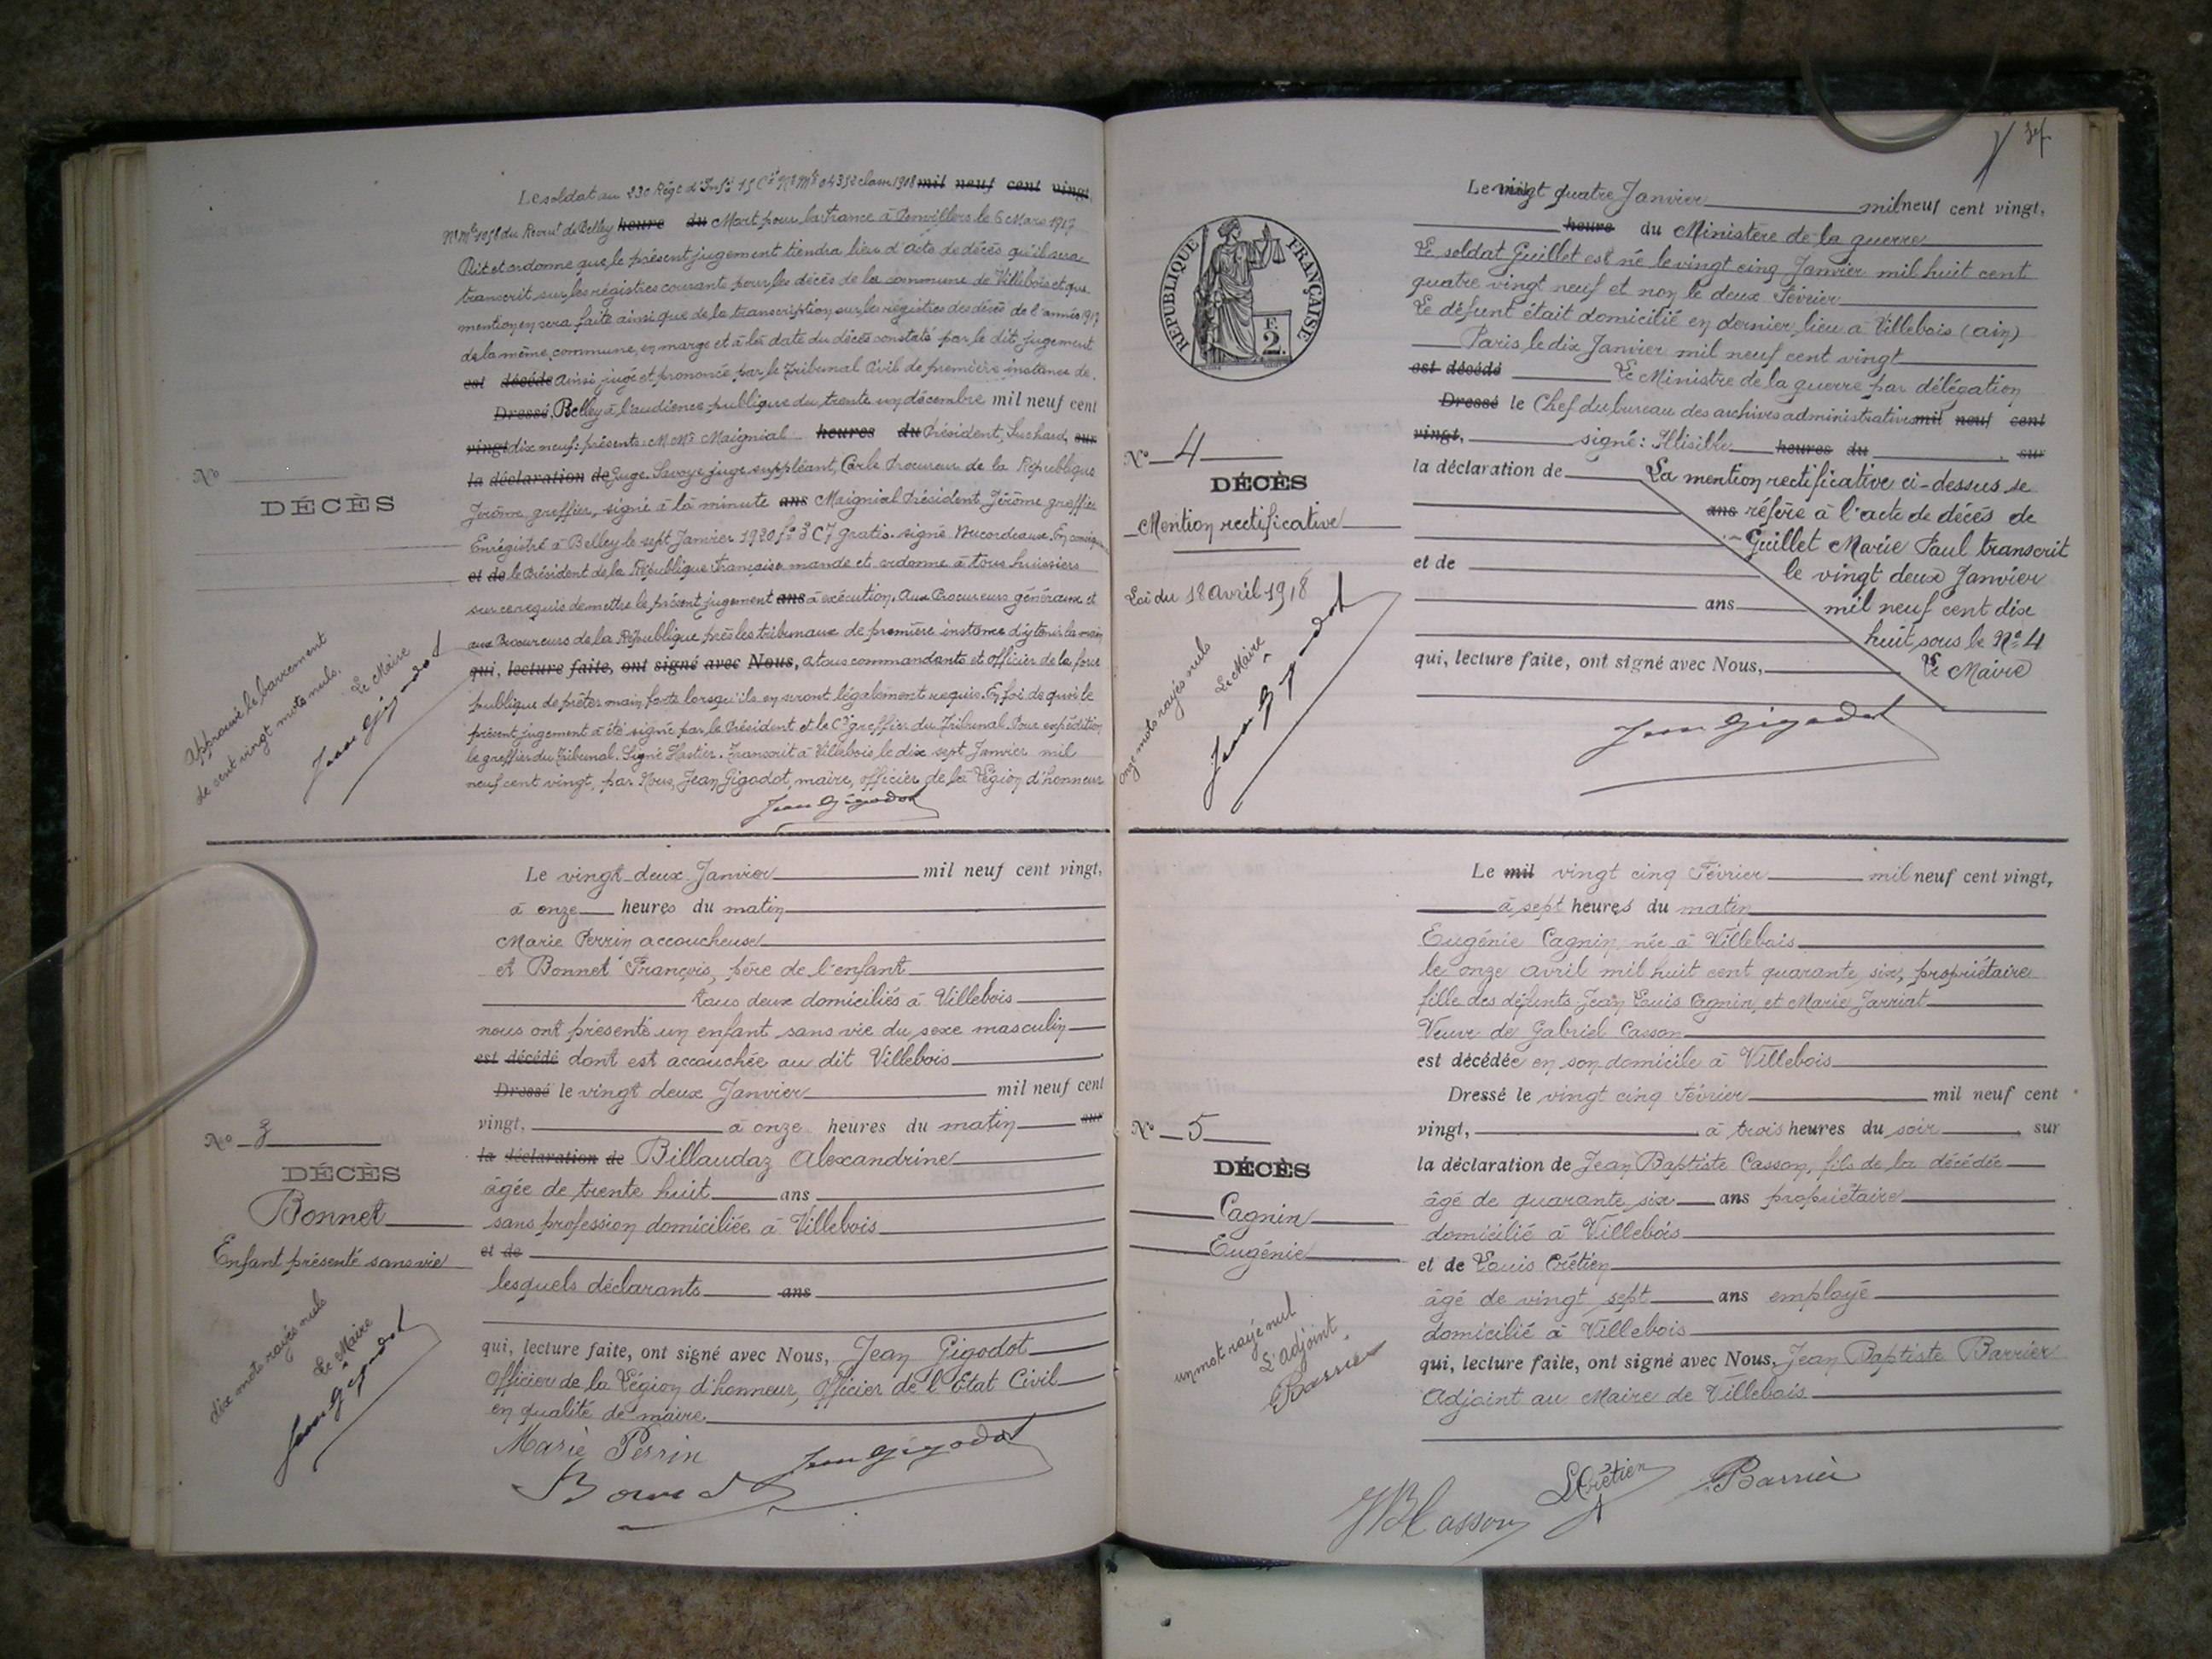 Le soldat au 230 Régt d'Infie 15 Cie No Mle classe 1908 mil neuf cent vingt
No Mle du Recrut de Belley heure du Mort pour la France à le 6 Mars 1917
Dit et ordonne que le présent jugement tiendra lieu d'acte de décès qu'il sera
transcrit sur les régistres courants pour les décès de la commune de Villebois et que
mention en sera faite ainsi que de la transcription sur les régistres des décès de l'année 1917
de la même commune, en marge et à la date du décès constaté par le dit jugement
est décédé Ainsi jugé et prononcé par le Tribunal Civil de première instance de
Dressé, Belley à l'audience publique du trente un décembre mil neuf cent
vingt dix neuf: présents: M Mrs Maignial heures du Président, Suchard, sur
la déclaration de Juge. Savoye juge suppléant, Carle Procureur de la République
Jérôme greffier, signé à la minute ans Maignial Président Jérôme greffier
Enrégistré à Belley le sept Janvier 1920 fo 3 C 7 gratis. signé
et de le Président de la République Française mande et ordonne à tous huissiers
sur ce requis de mettre le présent jugement ans à exécution. Aux Procureurs généraux et
aux Procureurs de la République près les tribunaux de première instance d'y tenir la main
qui, lecture faite, ont signé avec Nous, à tous commandants et officier de la force
publique de prêter main forte lorsqu'ils en seront légalement requis. En foi de quoi le
présent jugement a été signé par le Président et le Cis greffier du Tribunal. Pour expédition
le greffier du Tribunal. Signé Hostier. Transcrit à Villebois le dix sept Janvier mil
neuf cent vingt, par Nous, Jean Gigodot, maire, officier de la Légion d'honneur
Jean Gigodot
No
DÉCÈS
Approuvé le barrement
de cent vingt mots nuls.
Le Maire
Jean Gigodot
Le vingt deux Janvier mil neuf cent vingt,
à onze heures du matin
Marie Perrin accoucheuse
et Bonnet François, père de l'enfant
tous deux domiciliés à Villebois
nous ont présenté un enfant sans vie du sexe masculin
est décédé dont est accouchée au dit Villebois
Dressé le vingt deux Janvier mil neuf cent
vingt, à onze heures du matin sur
la déclaration de Billaudaz Alexandrine
âgée de trente huit ans
sans profession domiciliée à Villebois
et de
lesquels déclarants ans
qui, lecture faite, ont signé avec Nous, Jean Gigodot
Officier de la Légion d'honneur, Officier de l'Etat Civil
en qualité de maire
Marie Perrin
Jean Gigodot
Bonnet
No 3
DÉCÈS
Bonnet
Enfant présenté sans vie
dix mots rayés nuls
Le Maire
Jean Gigodot
Le vingt quatre Janvier mil neuf cent vingt,
heure du Ministère de la guerre
Le soldat Guillet est né le vingt cinq Janvier mil huit cent
quatre vingt neuf et non le deux Février
Le défunt était domicilié en dernier lieu à Villebois (Ain)
Paris le dix Janvier mil neuf cent vingt
est décédé Le Ministre de la guerre par délégation
Dressé le Chef du bureau des archives administratives mil neuf cent
vingt, signé: Illisible heures du sur
la déclaration de La mention rectificative ci-dessus se
ans réfère à l'acte de décès de
Guillet Marie Paul transcrit
et de le vingt deux Janvier
ans mil neuf cent dix
huit sous le No 4
qui, lecture faite, ont signé avec Nous, Le Maire
Jean Gigodot
REPUBLIQUE FRANÇAISE
F.
2.
No 4
DÉCÈS
Mention rectificative
Loi du 18 Avril 1918
onze mots rayés nuls
Le Maire
Jean Gigodot
Le mil vingt cinq Février mil neuf cent vingt,
à sept heures du matin
Eugénie Cagnin, née à Villebois
le onze avril mil huit cent quarante six, propriétaire
fille des défunts Jean Louis Cagnin, et Marie Jarriat
Veuve de Gabriel Casson
est décédée en son domicile à Villebois
Dressé le vingt cinq Février mil neuf cent
vingt, à trois heures du soir, sur
la déclaration de Jean Baptiste Casson, fils de la décédée
âgé de quarante six ans propriétaire
domicilié à Villebois
et de Louis Crétien
âgé de vingt sept ans employé
domicilié à Villebois
qui, lecture faite, ont signé avec Nous, Jean Baptiste Barrier
Adjoint au Maire de Villebois
JB Casson
L Crétien
Barrier
No 5
DÉCÈS
Cagnin
Eugénie
un mot rayé nul
L'Adjoint
Barrier